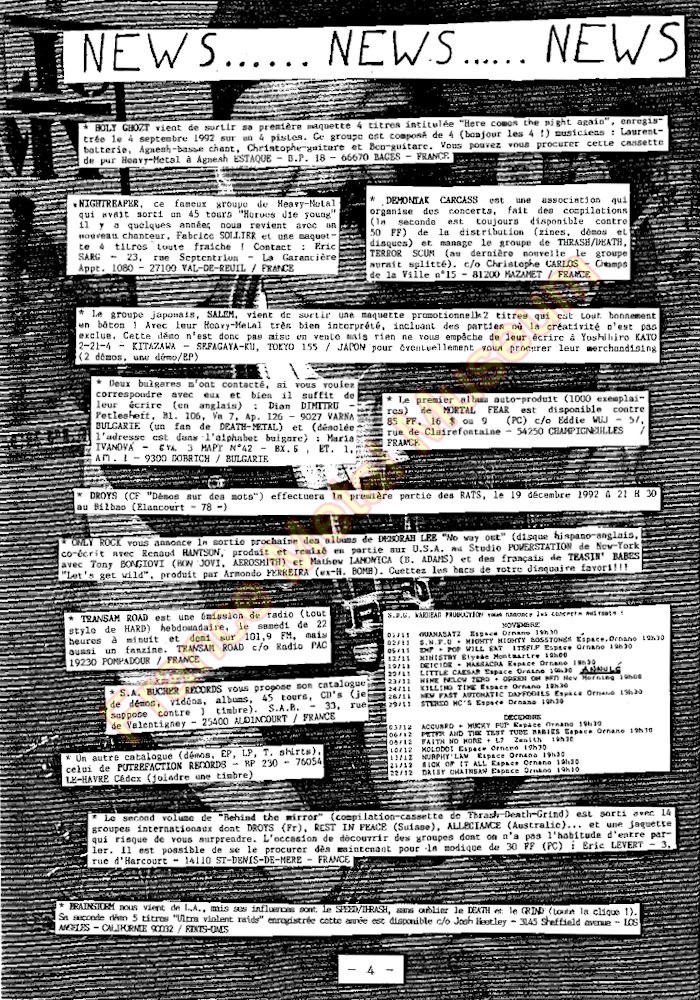 NEWS...... NEWS...... NEWS
* HOLY GHOZT vient de sortir sa première maquette 4 titres intitulée "Here comes the night again", enregis-
trée le 4 septembre 1992 sur un 4 pistes. Ce groupe est composé de 4 (bonjour les 4 !) musiciens : Laurent-
batterie, Agnesh-basse chant, Christophe-guitare et Ben-guitare. Vous pouvez vous procurer cette cassette
de pur Heavy-Metal à Agnesh ESTAQUE - B.P. 18 - 66670 BAGES - FRANCE
*NIGHTREAPER, ce fameux groupe de Heavy-Metal
qui avait sorti un 45 tours "Heroes die young"
il y a quelques années nous revient avec un
nouveau chanteur, Fabrice SOLLIER et une maquet-
te 4 titres toute fraîche ! Contact : Eric
SARG - 23, rue Septentrion - La Garancière
Appt. 1080 - 27100 VAL-DE-REUIL / FRANCE
* DEMONIAK CARCASS est une association qui
organise des concerts, fait des compilations
(la seconde est toujours disponible contre
50 FF) de la distribution (zines, démos et
disques) et manage le groupe de THRASH/DEATH,
TERROR SCUM (au dernière nouvelle le groupe
aurait splitté). c/o Christophe CARLOS - Champs
de la Ville n°15 - 81200 MAZAMET / FRANCE
* Le groupe japonais, SALEM, vient de sortir une maquette promotionnelle 2 titres qui est tout bonnement
un bâton ! Avec leur Heavy-Metal très bien interprété, incluant des parties où la créativité n'est pas
exclue. Cette démo n'est donc pas mise en vente mais rien ne vous empêche de leur écrire à Yoshihiro KATO
2-21-4 - KITAZAWA - SEFAGAYA-KU, TOKYO 155 / JAPON pour éventuellement vous procurer leur merchandising
(2 démos, une démo/EP)
* Deux bulgares m'ont contacté, si vous voulez
correspondre avec eux et bien il suffit de
leur écrire (en anglais) : Dian DIMITRU -
Petlesheff, Bl. 106, Vn 7, Ap. 126 - 9027 VARNA
BULGARIE (un fan de DEATH-METAL) et (désolée
l'adresse est dans l'alphabet bulgare) : Maria
IVANOVA - 3 MAPY N°42 - BX.6 , ET. 1,
1 - 9300 DOBRICH / BULGARIE
* Le premier album auto-produit (1000 exemplai-
res) de MORTAL FEAR est disponible contre
85 FF, 16 $ ou 9 (PC) c/o Eddie WUJ - 57,
rue de Clairefontaine - 54250 CHAMPIGNEULLES /
FRANCE
* DROYS (CF "Démos sur des mots") effectuera la première partie des RATS, le 19 décembre 1992 à 21 H 30
au Bilbao (Elancourt - 78 -)
* ONLY ROCK vous annonce la sortie prochaine des albums de DEBORAH LEE "No way out" (disque hispano-anglais,
co-écrit avec Renaud HANTSON, produit et remixé en partie aux U.S.A. au Studio POWERSTATION de New-York
avec Tony BONGIOVI (BON JOVI, AEROSMITH) et Mathew LAMONICA (B. ADAMS) et des français de TEASIN' BABES
"Let's get wild", produit par Armando FERREIRA (ex-H. BOMB). Guettez les bacs de votre disquaire favori!!!
* TRANSAM ROAD est une émission de radio (tout
style de HARD) hebdomadaire, le samedi de 22
heures à minuit et demi sur 101,9 FM, mais
aussi un fanzine. TRANSAM ROAD c/o Radio PAC
19230 POMPADOUR / FRANCE
* S.A. BUCHER RECORDS vous propose son catalogue
de démos, vidéos, albums, 45 tours, CD's (je
suppose contre 1 timbre). S.A.B. - 33, rue
de Valentigney - 25400 AUDINCOURT / FRANCE
* Un autre catalogue (démos, EP, LP, T. shirts),
celui de PUTREFACTION RECORDS - BP 230 - 76054
LE-HAVRE Cédex (joindre une timbre)
WARHEAD PRODUCTION vous annonce les concerts suivants :
NOVEMBRE
01/11 GUANABATZ Espace Ornano 19h30
02/11 S.N.F.U + MIGHTY MIGHTY BOSSTONES Espace Ornano 19h30
05/11 EMF + POP WILL EAT ITSELF Espace Ornano 19h30
12/11 MINISTRY Elysée Montmartre 19h00
19/11 DEICIDE + MASSACRA Espace Ornano 19h30
20/11 LITTLE CAESAR Espace Ornano 19h30 ANNULÉ
23/11 NINE BELOW ZERO + GREEN ON RED New Morning 19h00
24/11 KILLING TIME Espace Ornano 19h30
26/11 NEW FAST AUTOMATIC DAFFODILS Espace Ornano 19h30
29/11 STEREO MC'S Espace Ornano 19h30
DECEMBRE
03/12 ACCUSED + MUCKY PUP Espace Ornano 19h30
06/12 PETER AND THE TEST TUBE BABIES Espace Ornano 19h30
08/12 FAITH NO MORE + L7 Zenith 19h30
10/12 MOLODOI Espace Ornano 19h30
13/12 MURPHY'LAW Espace Ornano 19h30
21/12 SICK OF IT ALL Espace Ornano 19h30
22/12 DAISY CHAINSAW Espace Ornano 19h30
* Le second volume de "Behind the mirror" (compilation-cassette de Thrash-Death-Grind) est sorti avec 14
groupes internationaux dont DROYS (Fr), REST IN PEACE (Suisse), ALLEGIANCE (Australie)... et une jaquette
qui risque de vous surprendre. L'occasion de découvrir des groupes dont on n'a pas l'habitude d'entre par-
ler. Il est possible de se le procurer dès maintenant pour la modique de 30 FF (PC) : Eric LEVERT - 3,
rue d'Harcourt - 14110 ST-DENIS-DE-MERE - FRANCE
* BRAINSTORM nous vient de L.A., mais ses influences sont le SPEED/THRASH, sans oublier le DEATH et le GRIND (toute la clique !).
Sa seconde démo 5 titres "Ultra violent raids" enregistrée cette année est disponible c/o Josh Heatley - 3145 Sheffield avenue - LOS
ANGELES - CALIFORNIE 90032 / ETATS-UNIS
- 4 -